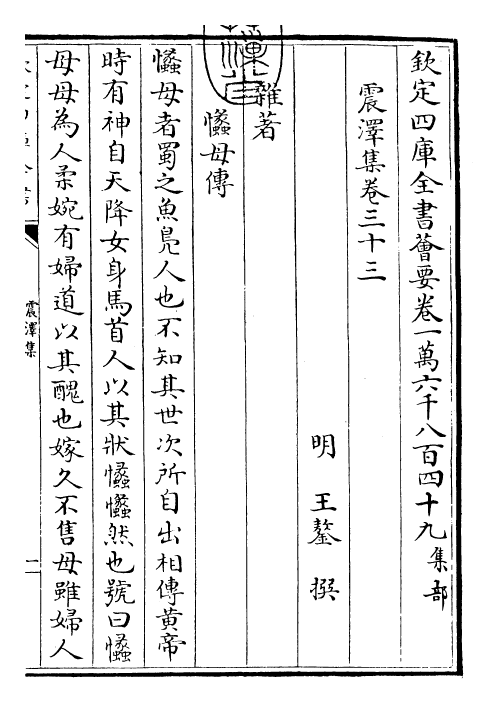 欽定四庫全書薈要卷一萬六千八百四十九集部
震澤集卷三十三
明 王鏊 撰
雜著
㦧母傳
㦧母者蜀之魚鳧人也不知其世次所自出相傳黄帝
時有神自天降女身馬首人以其狀㦧㦧然也號曰㦧
母母為人柔婉有婦道以其醜也嫁久不售母雖婦人
震澤集
一